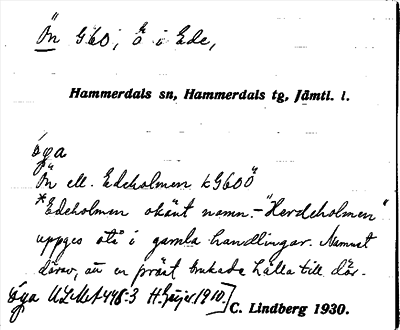 Ön G60, Ö i Ede,
Hammerdals sn, Hammerdals tg, Jämtl. l.
öya
Ön ell. Edeholmen k G60 Ö
*Edeholmen okänt namn. – "Herdeholmen"
uppges stå i gamla handlingar. Namnet
därav, att en präst brukade hålla till där.
öya ULMA 448:3 H. Geijer 1910.]
C. Lindberg 1930.